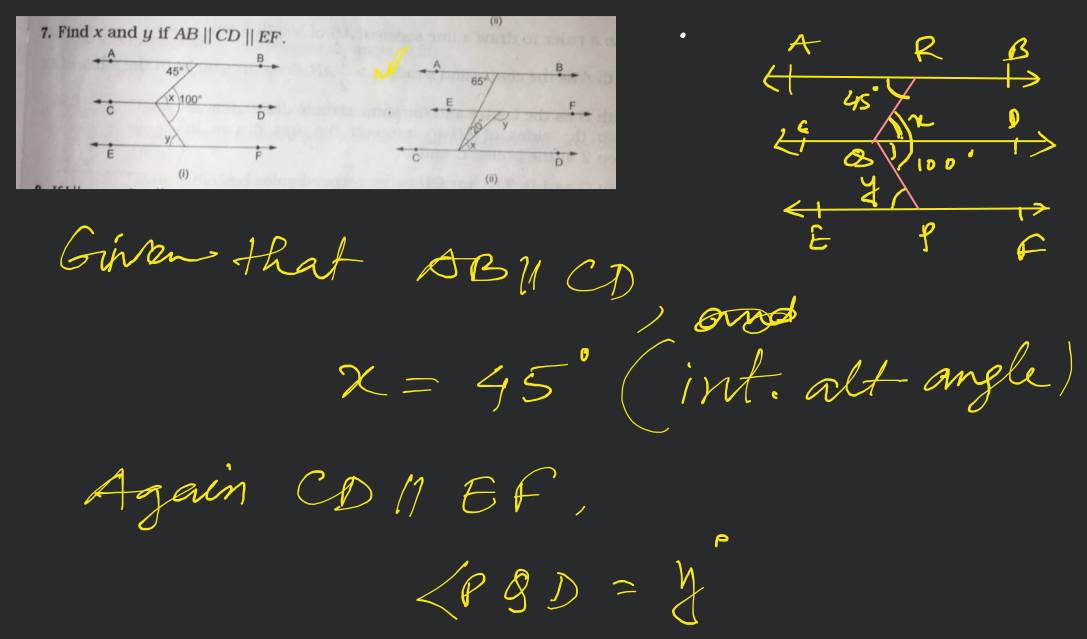 (ii)
7. Find x and y if AB || CD || EF.
A B
45°
x 100°
C D
y
E F
(i)
A B
65°
E F
20° y
x
C D
(ii)
A R B
45°
x
C D
Q 100°
y
E P F
Given that AB || CD
, and
x = 45° (int. alt angle)
Again CD || EF,
∠PQD = y°